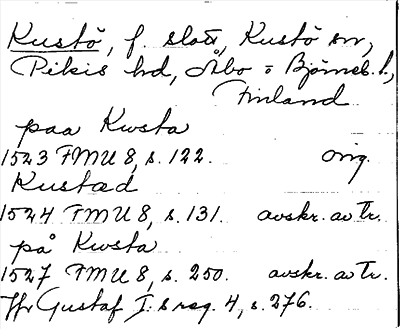 Kustö, f. slott, Kustö sn,
Pikis hd, Åbo o Björneb. l.,
Finland
paa Kwsta
1523 FMU 8, s. 122. orig.
Kustad
1524 FMU 8, s. 131. avskr. av Tr.
på Kwsta
1527 FMU 8, s. 250. avskr. av Tr.
Jfr Gustaf I:s reg. 4, s. 276.